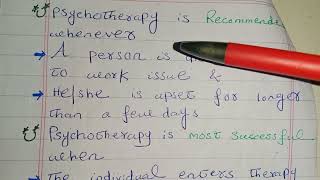 Psychotherapy is Recommende
whenever
A person is u
to work issue &
He/she is upset for longer
than a few days
Psychotherapy is most successful
when
the individual enters therapy